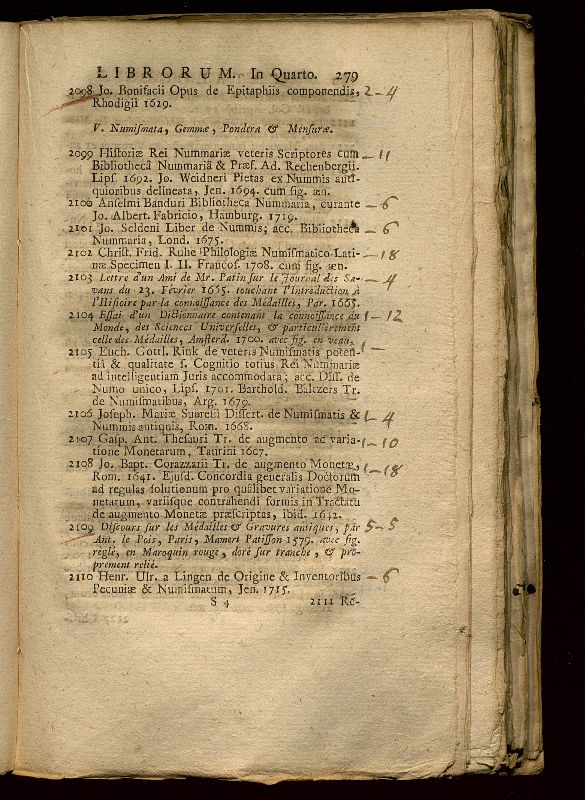 LIBRORUM. In Quarto. 279
2098 Jo. Bonifacii Opus de Epitaphiis componendis, 2-4
Rhodigii 1629.
V. Numiſmata, Gemmæ, Pondera & Menſuræ.
2099 Hiſtoriæ Rei Nummariæ veteris Scriptores cum -11
Bibliothecâ Nummariâ & Præf. Ad. Rechenbergii.
Lipſ. 1692. Jo. Weidneri Pietas ex Nummis anti-
quioribus delineata, Jen. 1694. cum fig. æn.
2100 Anſelmi Banduri Bibliotheca Nummaria, curante -6
Jo. Albert. Fabricio, Hamburg. 1719.
2101 Jo. Seldeni Liber de Nummis; acc. Bibliotheca -6
Nummaria, Lond. 1675.
2102 Chriſt. Frid. Ruhe Philologiæ Numiſmatico-Lati- -18
næ Specimen I. II. Francof. 1708. cum fig. æn.
2103 Lettre d'un Ami de Mr. Patin ſur le Journal des Sa- -4
vans du 23. Février 1665. touchant l'Introduction à
l'Hiſtoire par la connoiſſance des Médailles, Par. 1665.
2104 Eſſai d'un Dictionnaire contenant la connoiſſance du 1-12
Monde, des Sciences Univerſelles, & particulièrement
celle des Médailles, Amſterd. 1700. avec fig. en veau.
2105 Euch. Gottl. Rink de veteris Numiſmatis poten- 1-
tiâ & qualitate ſ. Cognitio totius Rei Nummariæ
ad intelligentiam Juris accommodata; acc. Diſſ. de
Numo unico, Lipſ. 1701. Barthold. Baltzers Tr.
de Numiſmatibus, Arg. 1679.
2106 Joſeph. Mariæ Suareſii Diſſert. de Numiſmatis & 1-4
Nummis antiquis, Rom. 1668.
2107 Gaſp. Ant. Theſauri Tr. de augmento ac varia- 1-10
tione Monetarum, Taurini 1607.
2108 Jo. Bapt. Corazzarii Tr. de augmento Monetæ, 1-18
Rom. 1641. Ejuſd. Concordia generalis Doctorum
ad regulas ſolutionum pro quâlibet variatione Mo-
netarum, variiſque contrahendi formis in Tractatu
de augmento Monetæ præſcriptas, ibid. 1642.
2109 Diſcours ſur les Médailles & Gravures antiques, par 5-5
Ant. le Pois, Paris, Mamert Patiſſon 1579. avec fig.
reglé, en Maroquin rouge, doré ſur tranche, & pro-
prement relié.
2110 Henr. Ulr. a Lingen de Origine & Inventoribus -6
Pecuniæ & Numiſmatum, Jen. 1715.
S 4 2111 Re-